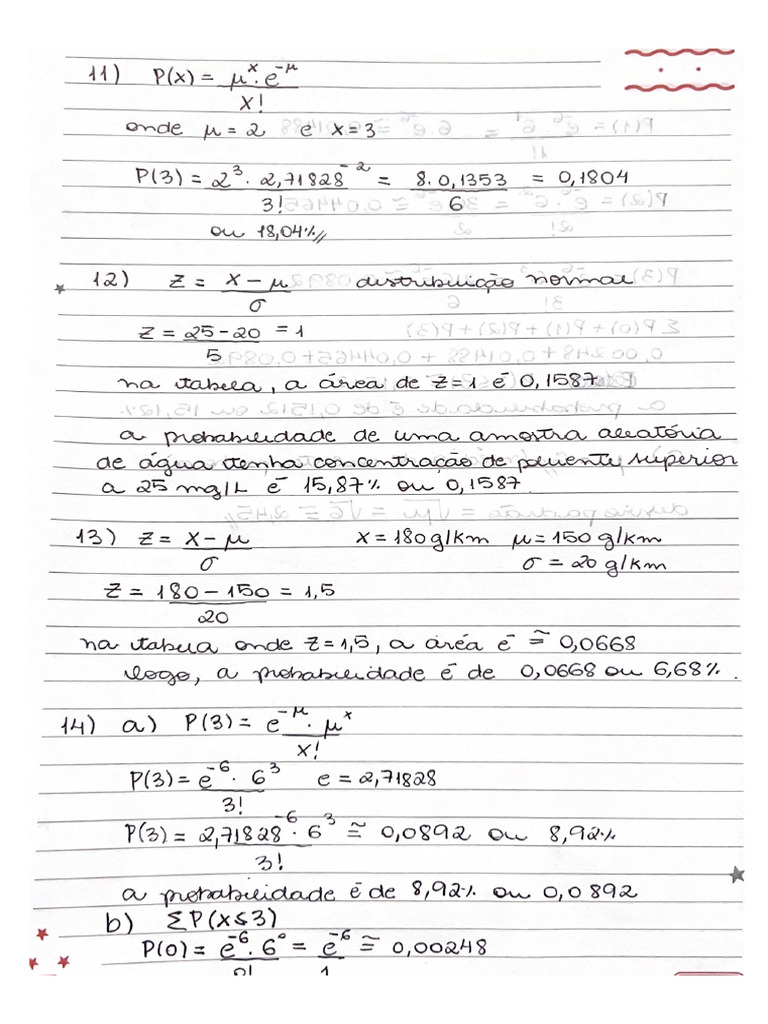 11) P(x) = μˣ · e⁻μ
x!
onde μ = 2 e x = 3
P(3) = 2³ · 2,71828⁻² = 8 · 0,1353 = 0,1804
3! 6
ou 18,04%//
12) Z = x - μ distribuição normal
σ
Z = 25 - 20 = 1
5
na tabela, a área de Z = 1 é 0,1587
a probabilidade de uma amostra aleatória
de água tenha concentração de poluente superior
a 25 mg/L é 15,87% ou 0,1587
13) Z = x - μ x = 180 g/km μ = 150 g/km
σ σ = 20 g/km
Z = 180 - 150 = 1,5
20
na tabela onde Z = 1,5, a área é ≅ 0,0668
logo, a probabilidade é de 0,0668 ou 6,68%.
14) a) P(3) = e⁻μ · μˣ
x!
P(3) = e⁻⁶ · 6³ e = 2,71828
3!
P(3) = 2,71828⁻⁶ · 6³ ≅ 0,0892 ou 8,92%
3!
a probabilidade é de 8,92% ou 0,0892
b) ΣP(x≤3)
P(0) = e⁻⁶ · 6⁰ = e⁻⁶ ≅ 0,00248
0! 1